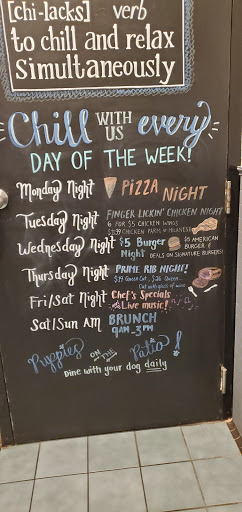 [chi-lacks] verb
to chill and relax
Simultaneously
Chill WITH US every
DAY OF THE WEEK!
Monday Night PIZZA NIGHT
Tuesday Night FINGER LICKIN' CHICKEN NIGHT
6 FOR $5 CHICKEN WINGS
CHICKEN PARM
Wednesday Night $5 Burger Night
$5 AMERICAN BURGER
DEALS ON SIGNATURE BURGERS!
Thursday Night PRIME RIB NIGHT!
Fri/Sat Night Chef's Specials
Live music!
Sat/Sun AM BRUNCH
9AM-3PM
Puppies ON THE Patio!
Dine with your dog daily